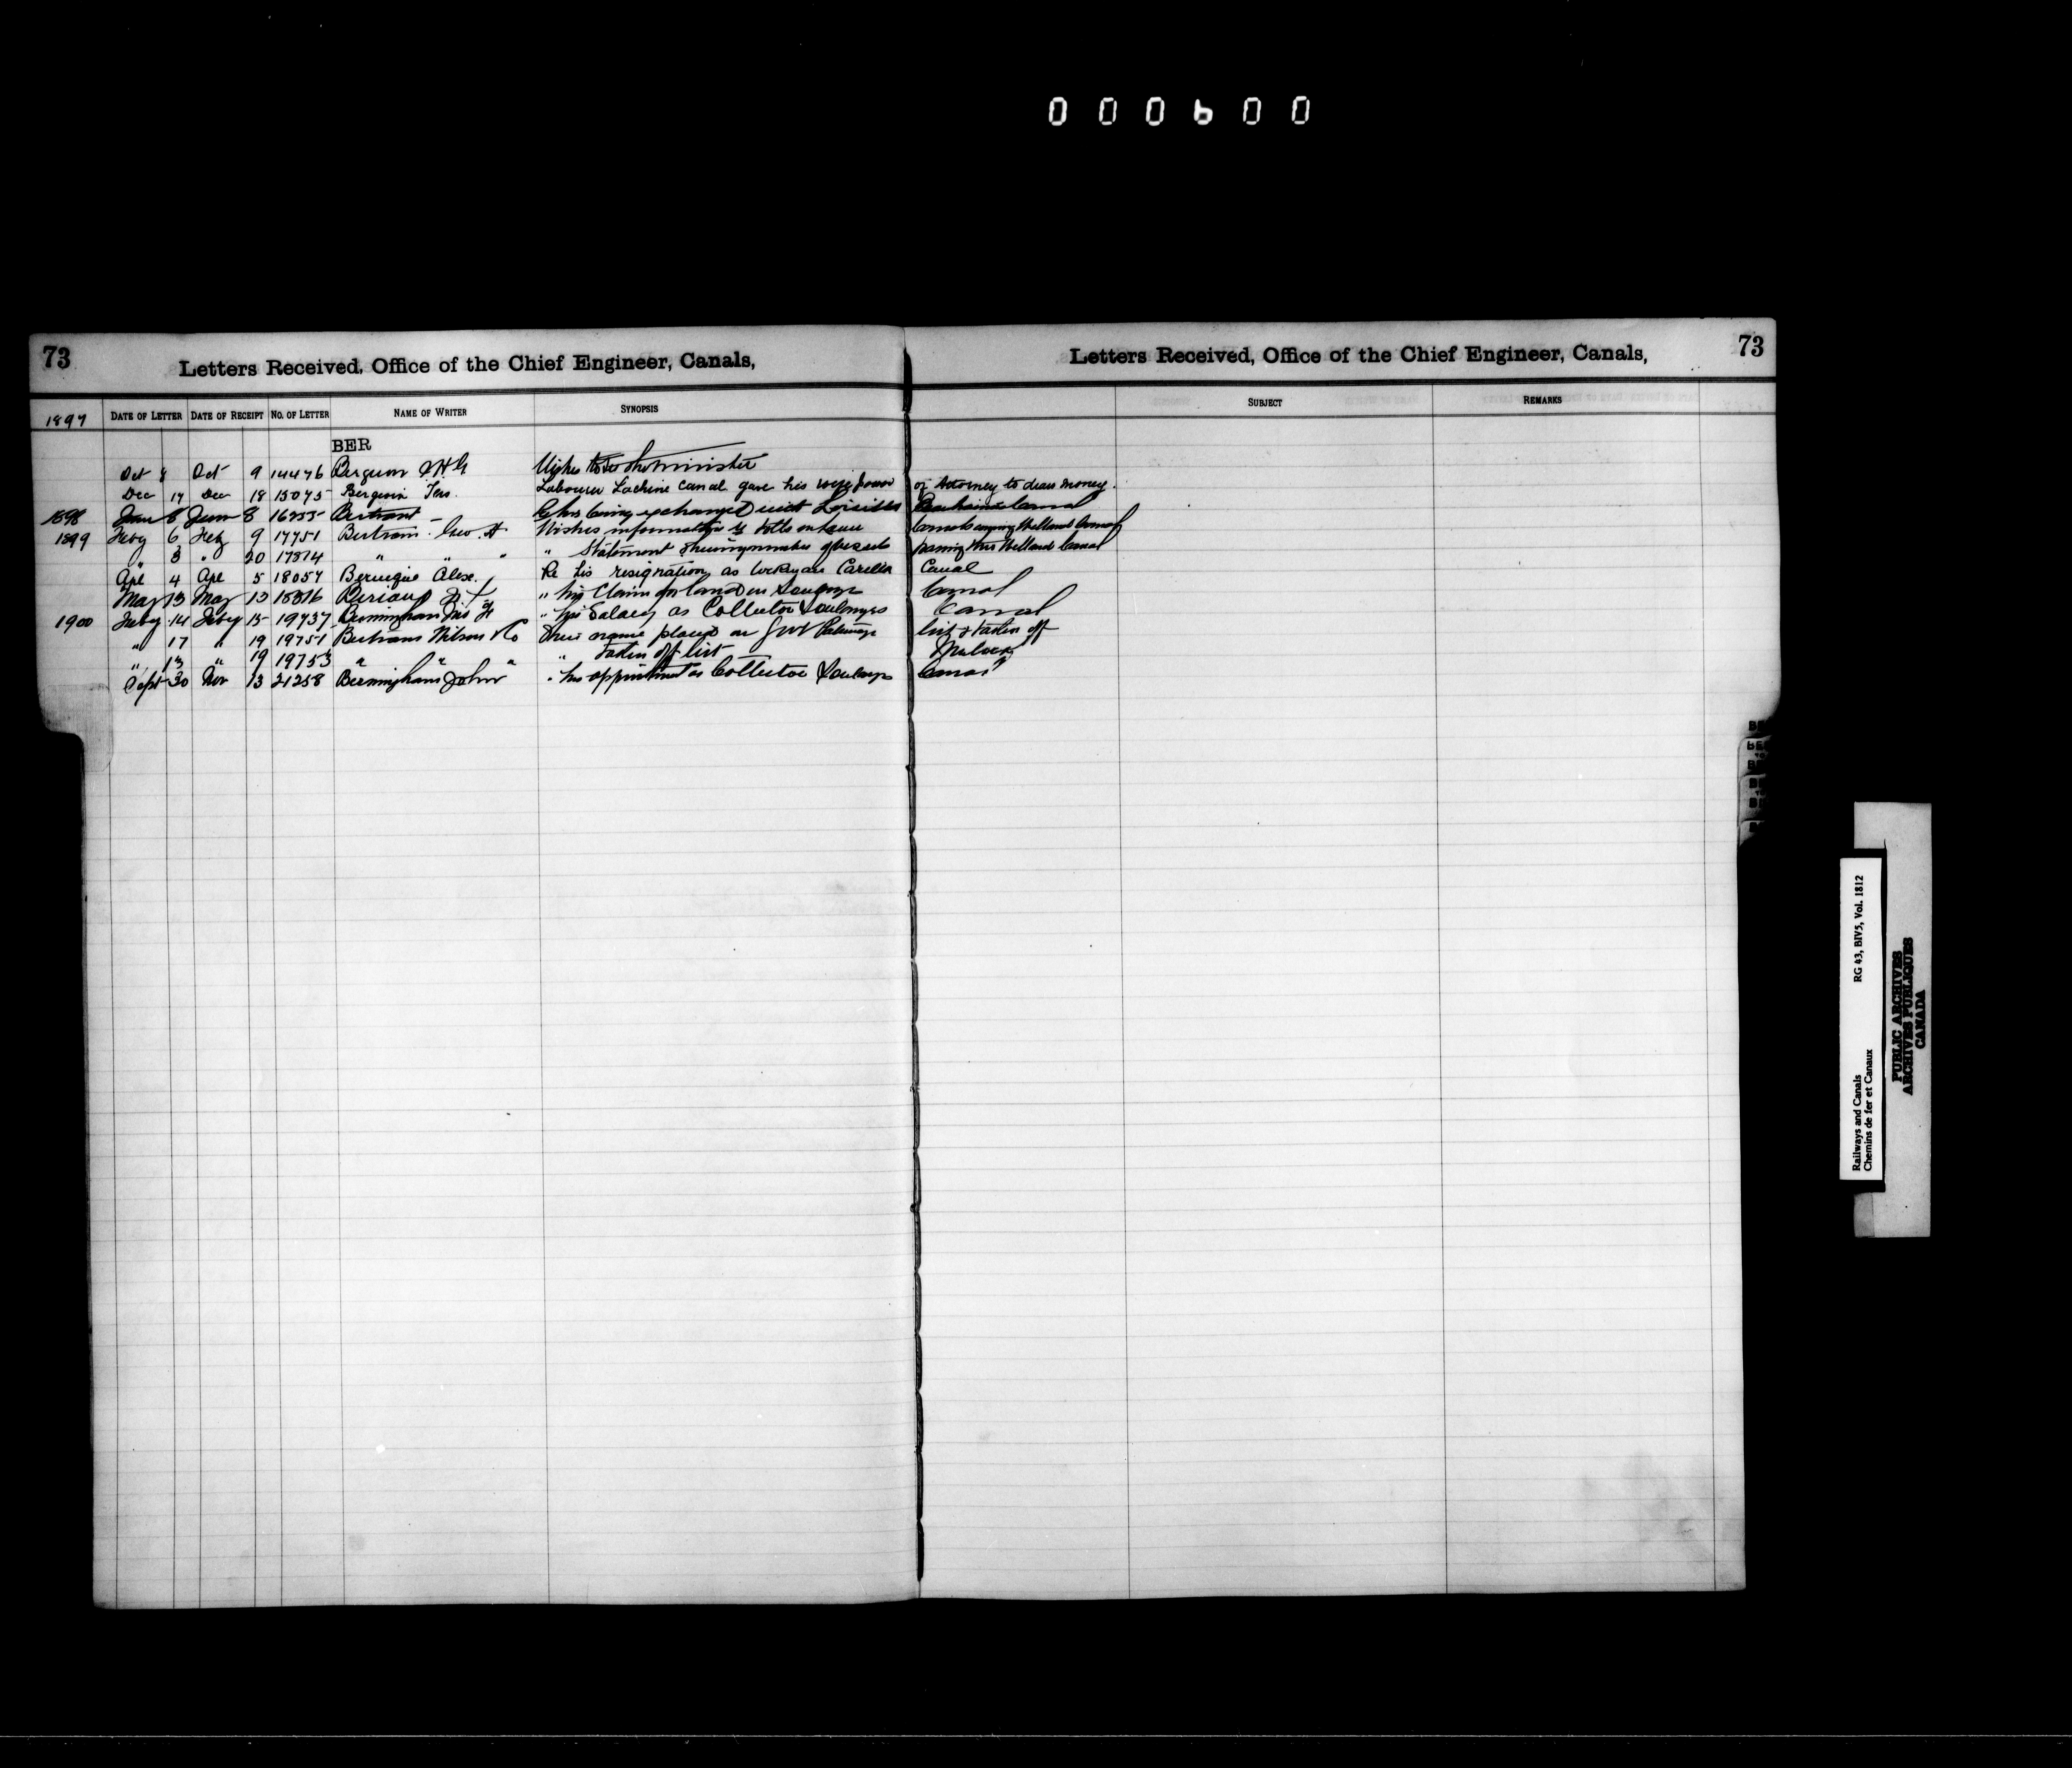 000600
73 Letters Received, Office of the Chief Engineer, Canals, Letters Received, Office of the Chief Engineer, Canals, 73
1897 DATE OF LETTER DATE OF RECEIPT NO. OF LETTER NAME OF WRITER SYNOPSIS SUBJECT REMARKS
BER
Oct 8 Oct 9 14476 Bergeron Wishes to see the minister
Dec 17 Dec 18 15075 Bergevin Labourer Lachine Canal gave his wife power of Attorney to draw money
1898 June 8 June 8 16255 Bertrant being exchanged with Canal
1899 Feby 6 Feby 9 17751 Bertram Geo. H Wishes information re tolls on Canals Welland Canal
" 3 " 20 17874 " " " " Statement of vessels passing thro Welland Canal
Apl 4 Apl 5 18057 Alex. Re his resignation as Carillon Canal
May 13 May 13 18316 " his Claim for land on Soulanges Canal
1900 Feby 14 Feby 15 19737 Bermingham " his Salary as Collector Soulanges Canal
" 17 " 19 19751 Bertram Wilson & Co Their name placed on Govt Patronage list & taken off
" 13 " 19 19753 " " " " taken off list
Sept 30 Nov 13 21258 Bermingham John " his appointment as Collector Soulanges Canal
Railways and Canals RG 43, BIV5, Vol. 1812
Chemins de fer et Canaux
PUBLIC ARCHIVES
ARCHIVES PUBLIQUES
CANADA